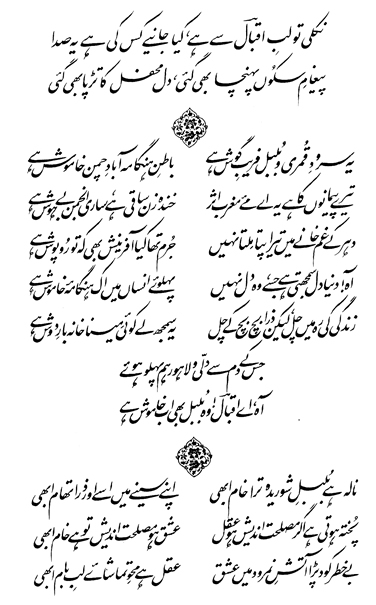 نکلی تو لبِ اقبالؔ سے ہے، کیا جانیے کس کی ہے یہ صدا
پیغامِ سکوں پہنچا بھی گئی، دل محفل کا تڑپا بھی گئی
یہ سرودِ قمری و بلبل فریبِ گوش ہے باطنِ ہنگامہ آبادِ چمن خاموش ہے
تیرے پیمانوں کا ہے یہ اے مئے مغرب اثر خندہ زن ساقی ہے، ساری انجمن بے ہوش ہے
دہر کے غم خانے میں تیرا پتا ملتا نہیں جُرم تھا کیا آفرینش بھی کہ تو روپوش ہے
آہ! دنیا دل سمجھتی ہے جسے، وہ دل نہیں پہلوئے انساں میں اک ہنگامۂ خاموش ہے
زندگی کی رہ میں چل، لیکن ذرا بچ بچ کے چل یہ سمجھ لے کوئی مینا خانہ بارِ دوش ہے
جس کے دم سے دلّی و لاہور ہم پہلو ہوئے
آہ، اے اقبالؔ! وہ بلبل بھی اب خاموش ہے
نالہ ہے بلبلِ شوریدہ ترا خام ابھی اپنے سینے میں اسے اور ذرا تھام ابھی
پُختہ ہوتی ہے اگر مصلحت اندیش ہو عقل عشق ہو مصلحت اندیش تو ہے خام ابھی
بے خطر کود پڑا آتشِ نمرود میں عشق عقل ہے محوِ تماشائے لبِ بام ابھی